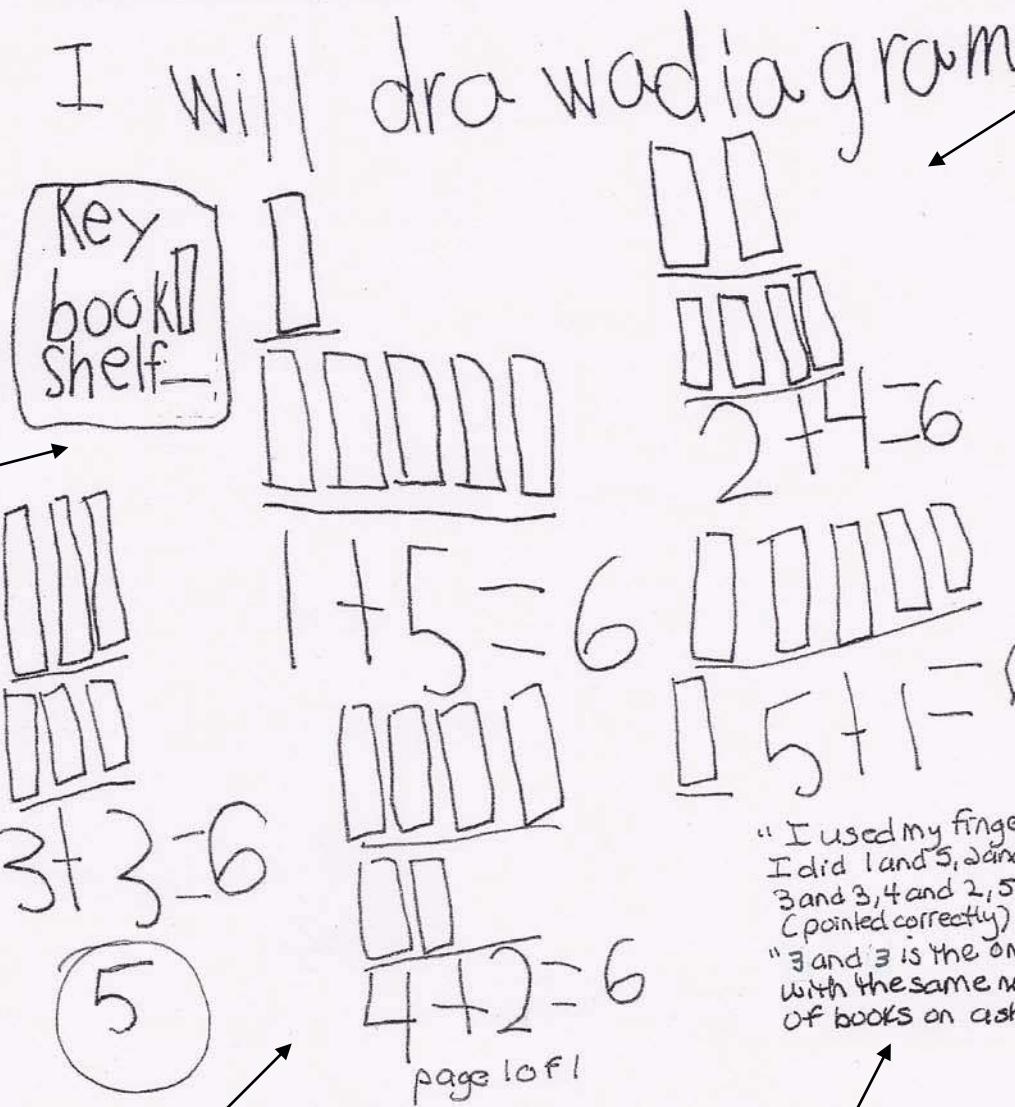 I will dra wadiagram
Key
book
shelf
2+4=6
1+5=6
5+1=
3+3=6
4+2=6
5
" I used my finge
I did 1 and 5, 2 and
3 and 3, 4 and 2, 5
(pointed correctly)
"3 and 3 is the on
with the same n
of books on ash
page 1 of 1